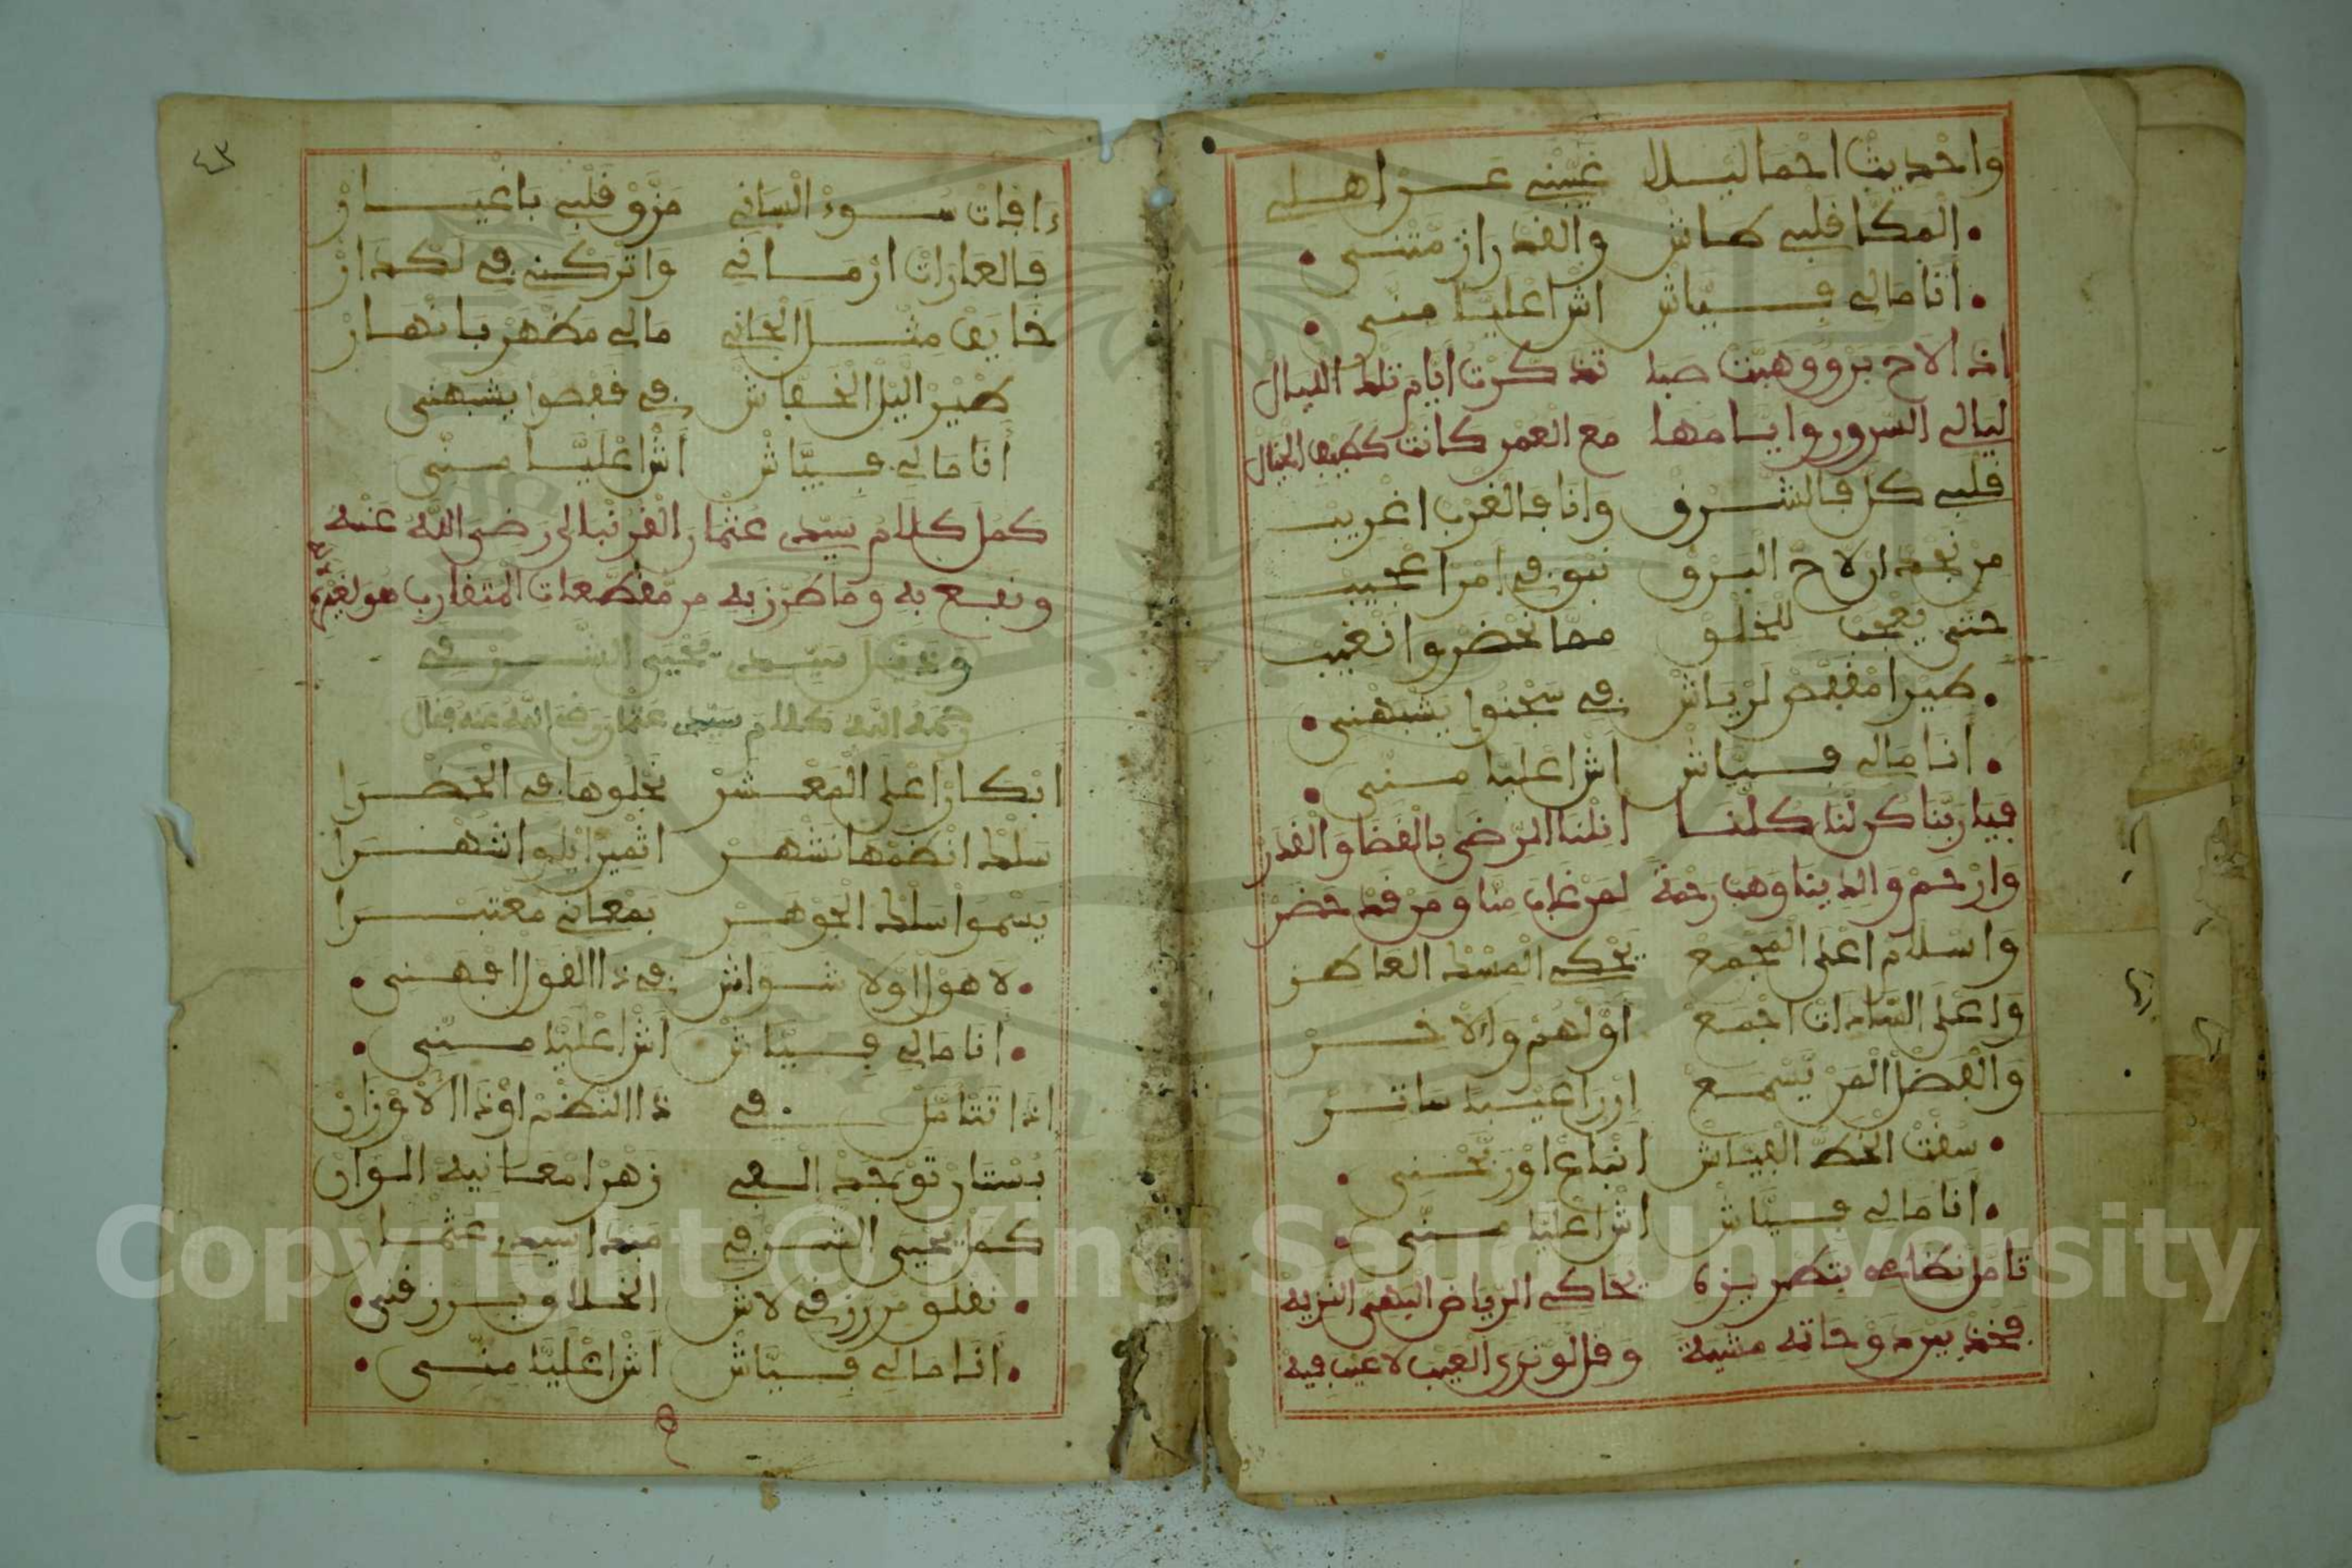 واحديث احما ليلل غيبني عن اهلي
المكا قلبي طاش والقدر از متني
انا مالي فياش اش اعليا مني
اذا لاح برق وهبت صبا تذكرت ايام تلك الليال
ليالي السرور وايامها مع العمر كانت كطيف الخيال
قلبي كل فالشرق وانا فالغرب اغريب
من نجد ان لاح البرق نبق في امر اعجيب
حتى يعجب للخلق مما نحضر وانغيب
طير امقفص لرياش في سجنوا يشبهني
انا مالي فياش اش اعليا مني
فيا ربنا كن لنا كلنا انلنا الرضى بالقضا والقدر
وارحم والدينا وهب رحمة لمن غاب منا ومن قد حضر
واسلام اعلى المجمع يحكي المسك العاطر
واعلى السادات اجمع اولهم والاخر
والفضل المن يسمع ان را عيبا ساتر
سقت الخط الفياش انباع اور نحني
انا مالي فياش اش اعليا مني
تامل نظامه بنظر نزه يحاكي الرياض البهي النزيه
فخذ بيرد وحاته مشية وقل لو نرى العيب لا عيب فيه
٤٣
ءافات سوء الساني مزق قلبي باغيار
فالعارات ارماني واتركني في لكدار
خايف مثل الجاني مالي مظهر بانهار
طير اليل الخفاش في قفصوا يشبهني
انا مالي فياش اش اعليا مني
كمل كلام سيدي عثمان القرنبالي رضي الله عنه
ونفع به وما طرز به من مقطعات المتقارب هو لغيره
وذيل سيدي يحيى الشرقي
رحمه الله كلام سيدي عثمان رضي الله عنه فقال
ابكار اعلى المعشر نجلوها في الحضرا
سلك انظمها نشهر اثمير ايلوا شهرا
يسموا سلك الجوهر بمعاني معتبرا
لا هول اولا شواش في ذا القول افهني
انا مالي فياش اش اعليا مني
اذا تتامل في ذا النظم اوذا الاوزان
بستان توجد الفي زهرا معانيه الوان
كمل يحيى الشرقي مبدا سيدي عثمان
نغلق من رزقي لاش الخلاق يرزقني
انا مالي فياش اش اعليا مني
Copyright © King Saud University
1957